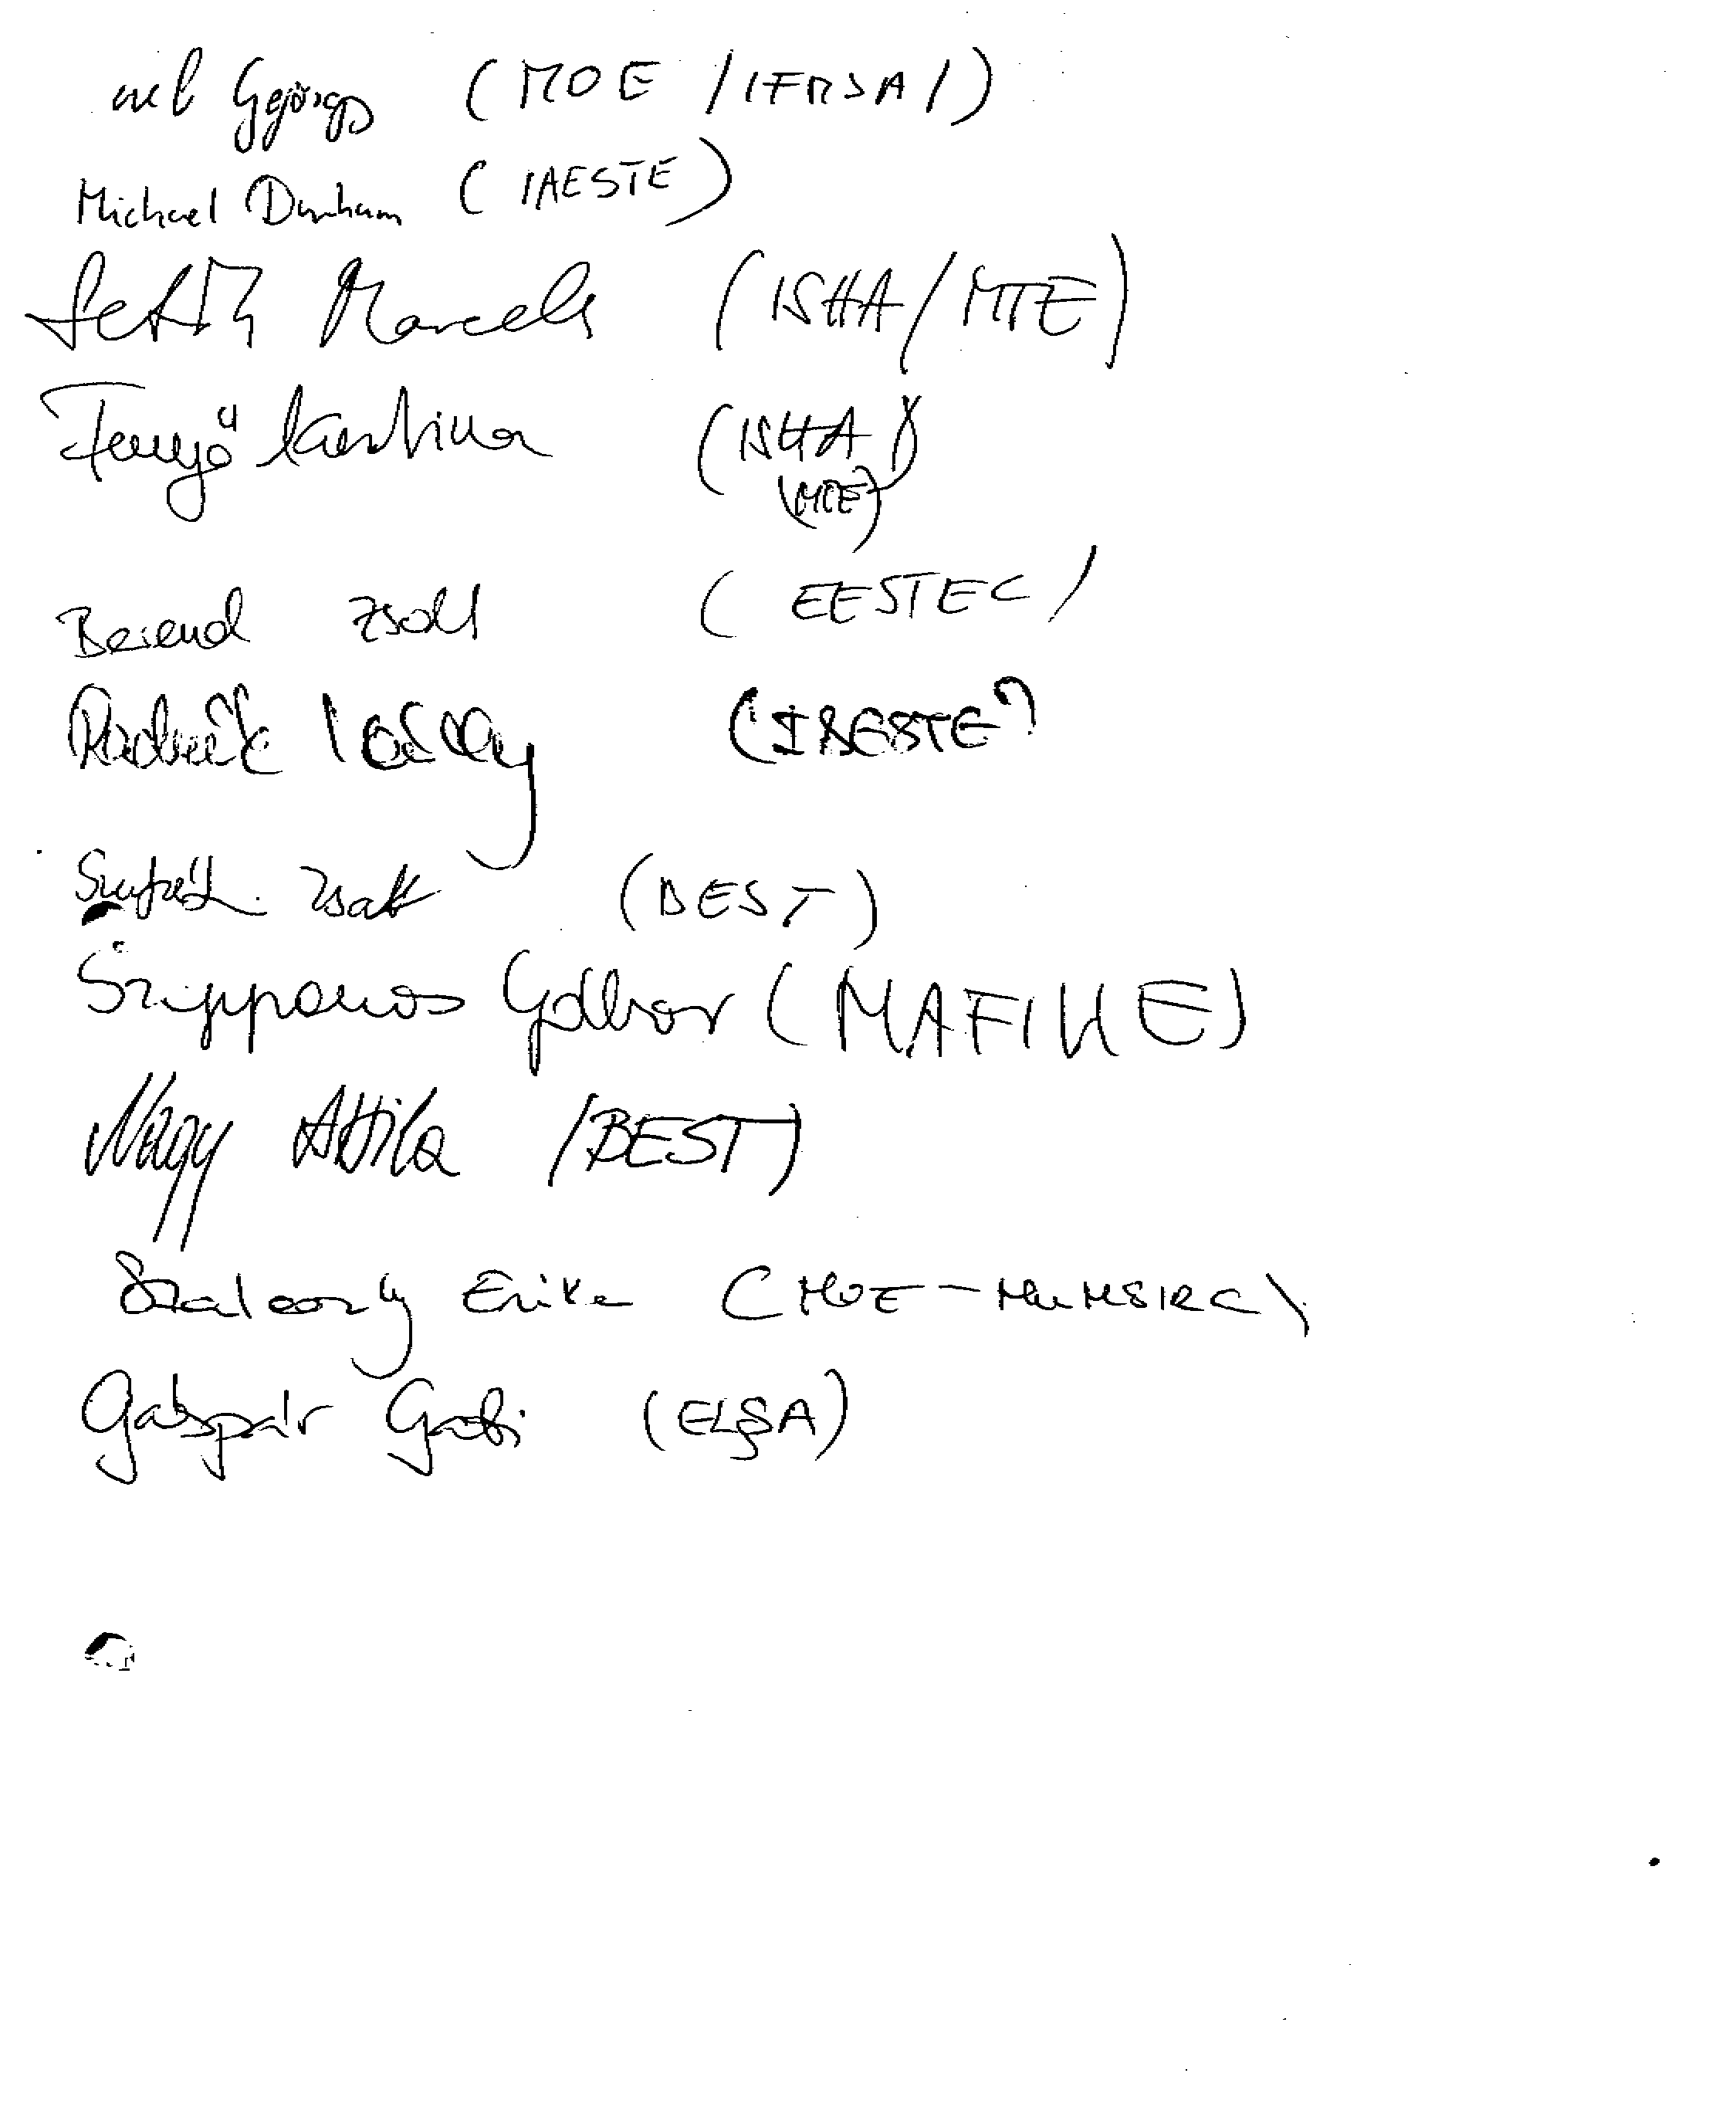 György (MOE /IFMSA/)
Michael Dunham (IAESTE)
Marcell (ISHA/MTE)
Fenyő Krisztina (ISHA)
(MTE)
Berend Zsolt (EESTEC)
László (IAESTE)
Zsolt (BEST)
Szipponos Gábor (MAFIHE)
Nagy Attila /BEST)
Szalconty Erika (MOE-HuMSIRC)
Gáspár Gabi (ELSA)